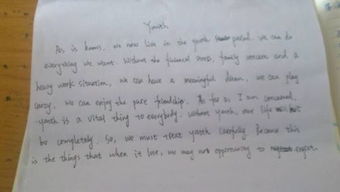 Youth
As is known, we now live in the youth period. we can do
everything we want. Without the financial stress, family concern and a
heavy work situation, we can have a meaningful dream, we can play
crazy, we can enjoy the pure friendship. As far as I am concerned,
youth is a vital thing to everybody, without youth, our life not
be completely. So, we must treat youth carefully. Because this
is the things that when it lose, we may no opportunity to regret